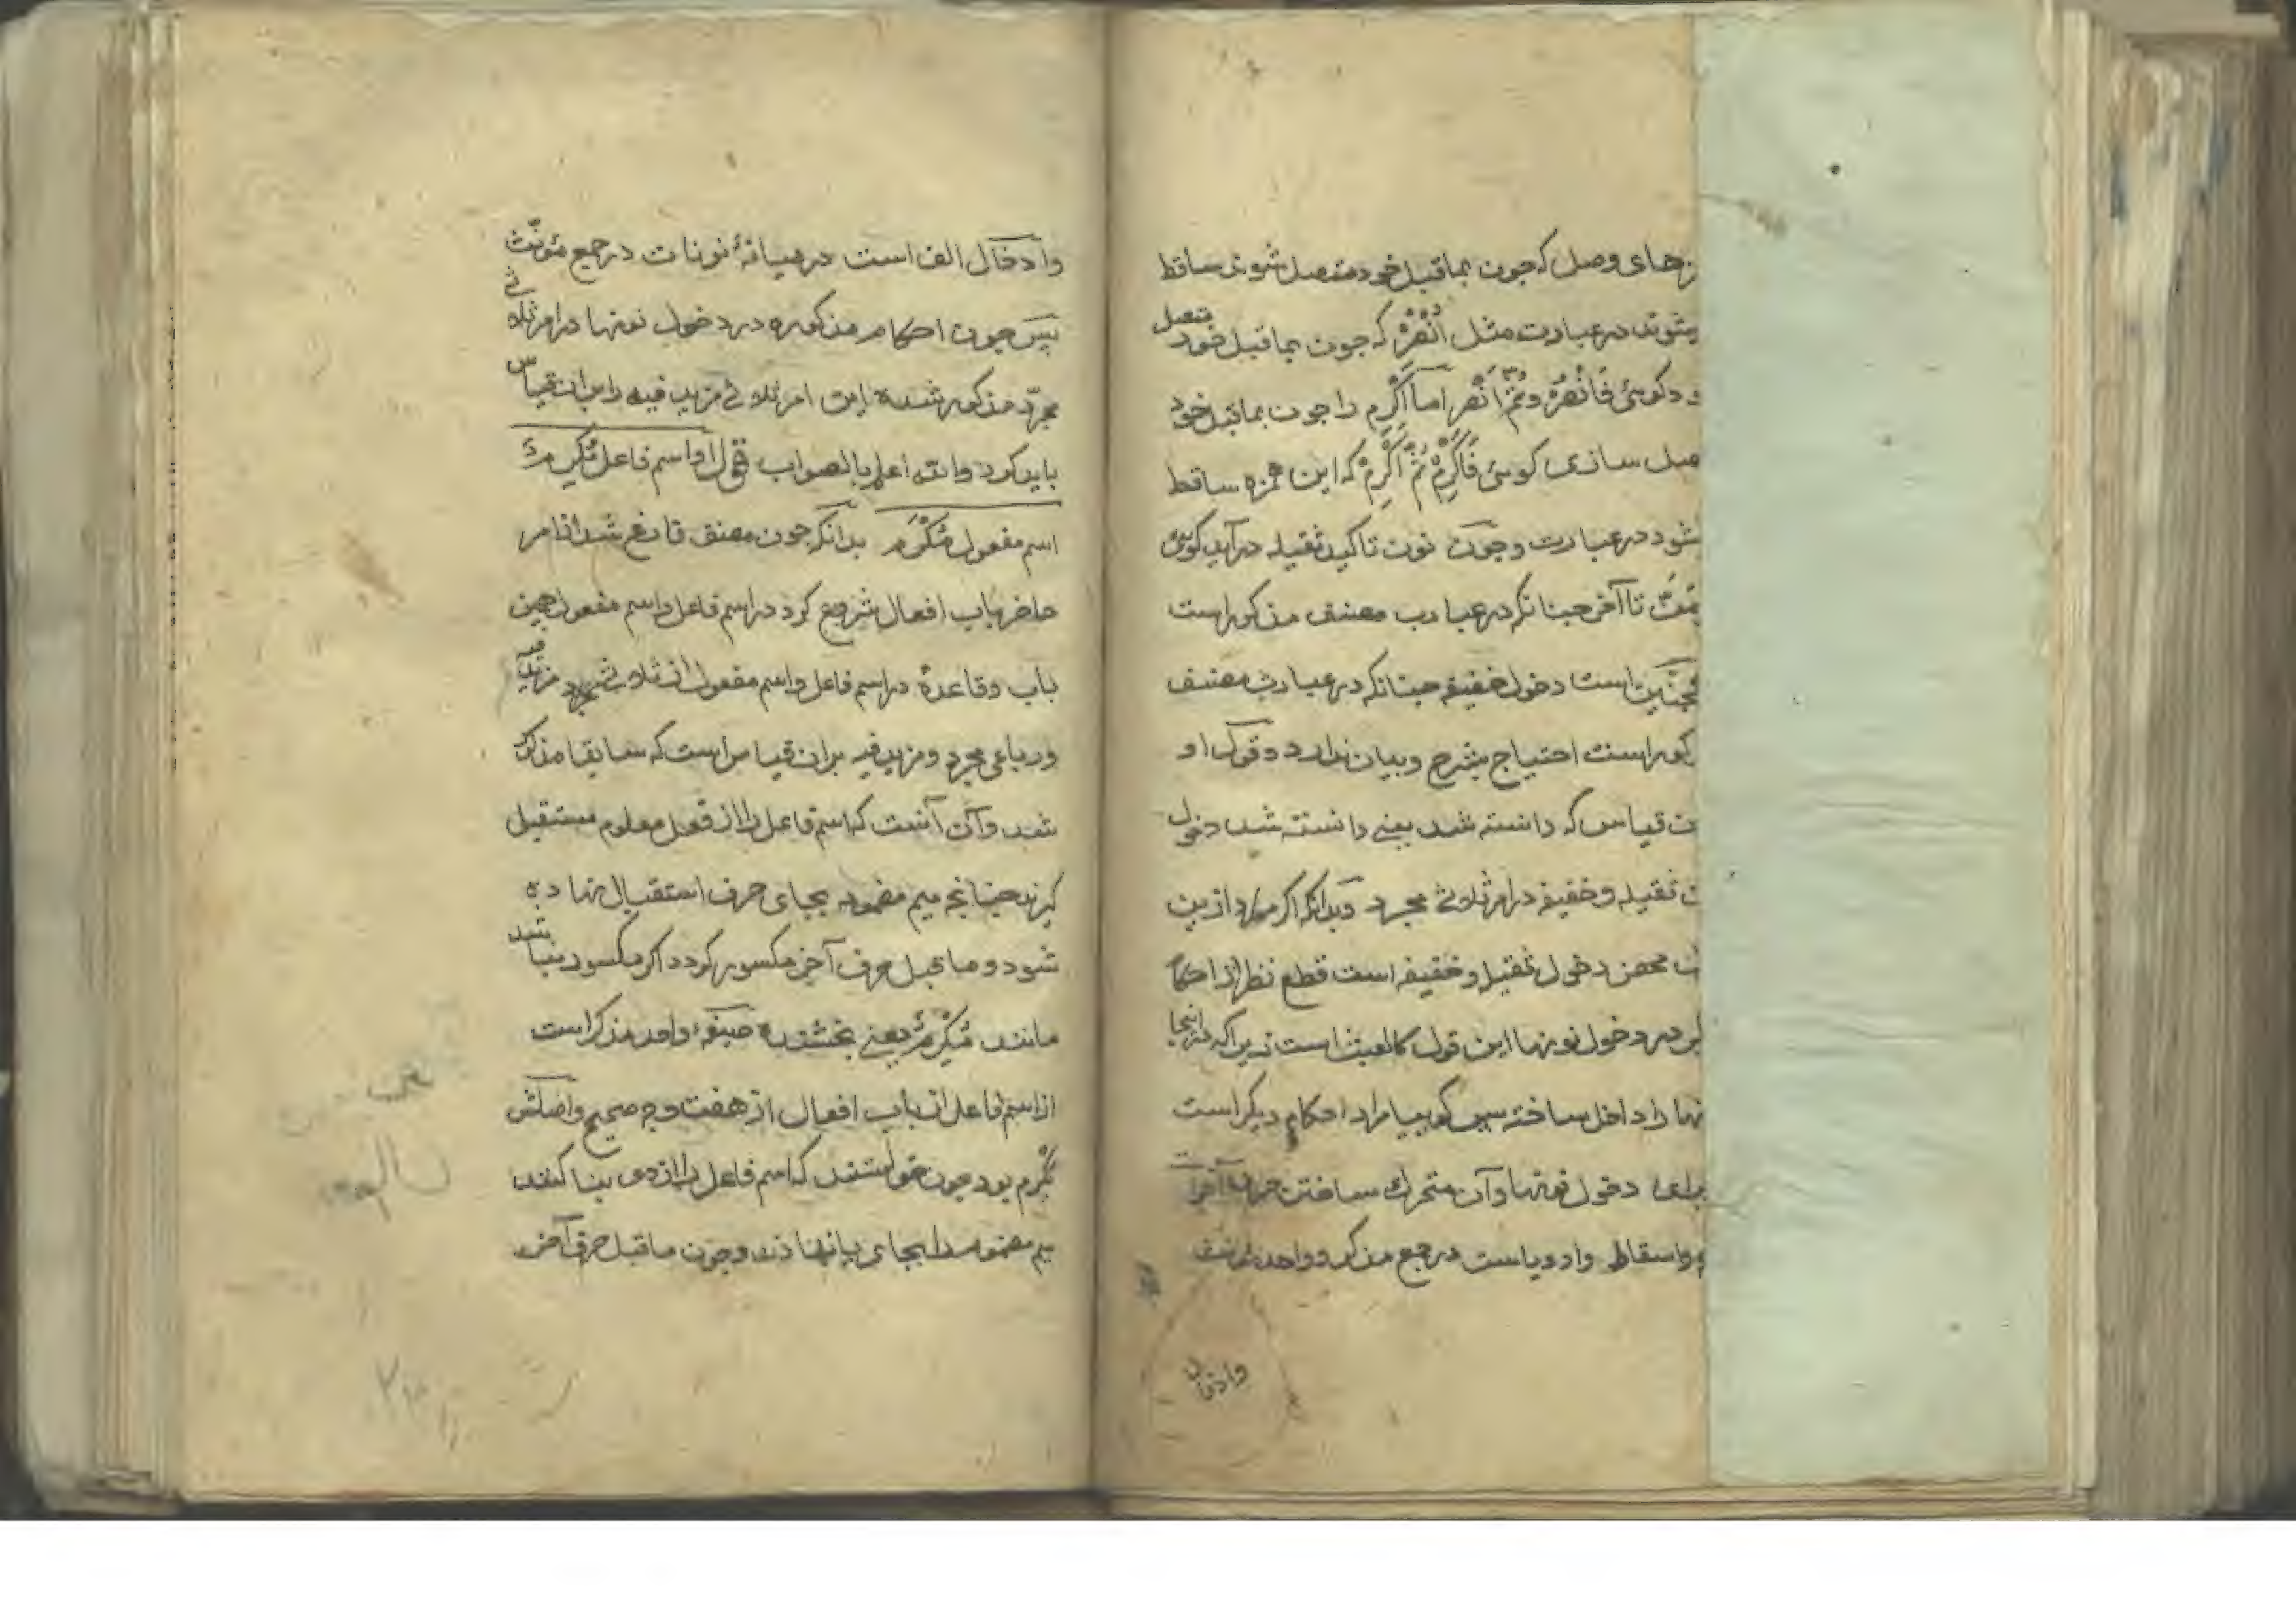 زهای وصل که جون بماقبل خود متصل شوند ساقط
میشوند در عبارت مثل اُنْصُرْ که جون بماقبل خود متصل
و د کوئی فَانْصُرْ و ثُمَّ انْصُر اما اَکْرِم را جون بماقبل خود
صل سازی کوئی فَاَکْرِمْ ثُمَّ اَکْرِمْ که این همزه ساقط
شود در عبارت و جون نون تاکید ثقیله در آید کوئی
تا آخر جنانکه در عبارت مصنف مذکور است
همجنین است دخول خفیفه جنانکه در عبارت مصنف
کور است احتیاج بشرح و بیان ندارد و قول او
ت قیاس که دانسته شد یعنے دانسته شد دخول
ن ثقیله و خفیفه در امر ثلاثی مجرد و بدانکه اکر مراد ازین
محض دخول ثقیله و خفیفه است قطع نظر از احکام
در دخول نونها این قول کالعبث است زیراکه در اینجا
نها را داخل ساخته بس کو بیا مراد احکام دیکر است
برای دخول نونها و آن متحرک ساختن حرف آخر است
و اسقاط واو و یاست در جمع مذکر و واحد مؤنث
وادخال
وادخال الف است در میانهٔ نونات در جمع مؤنّث
بس جون احکام مذکوره در دخول نونها در امر ثلاثی
مجرّد مذکور شده این امر ثلاثی مزید فیه را بران قیاس
باید کرد والله اعلم بالصواب قول او اسم فاعل مُکْرِمٌ
اسم مفعول مُکْرَم بدانکه جون مصنف فارغ شد از امر
حاضر باب افعال شروع کرد در اسم فاعل و اسم مفعول همین
باب و قاعدهٔ در اسم فاعل و اسم مفعول از ثلاثی مجرد مزید فیه
و رباعی مجرد و مزید فیه بران قیاس است که سابقا مذکور
شد و آن آنست که اسم فاعل را از فعل معلوم مستقبل
کیرند جنانجه میم مضمومه بجای حرف استقبال نهاده
شود و ماقبل حرف آخر مکسور کردد اکر مکسور نباشد
مانند مُکْرِمٌ یعنے بخشنده صیغهٔ واحد مذکر است
از اسم فاعل از باب افعال از هفت وجه صحیح و اصلش
یُکْرِم بود جون خواستند که اسم فاعل را از وی بنا کنند
میم مضمومه را بجای یا نهادند و جون ماقبل حرف آخر